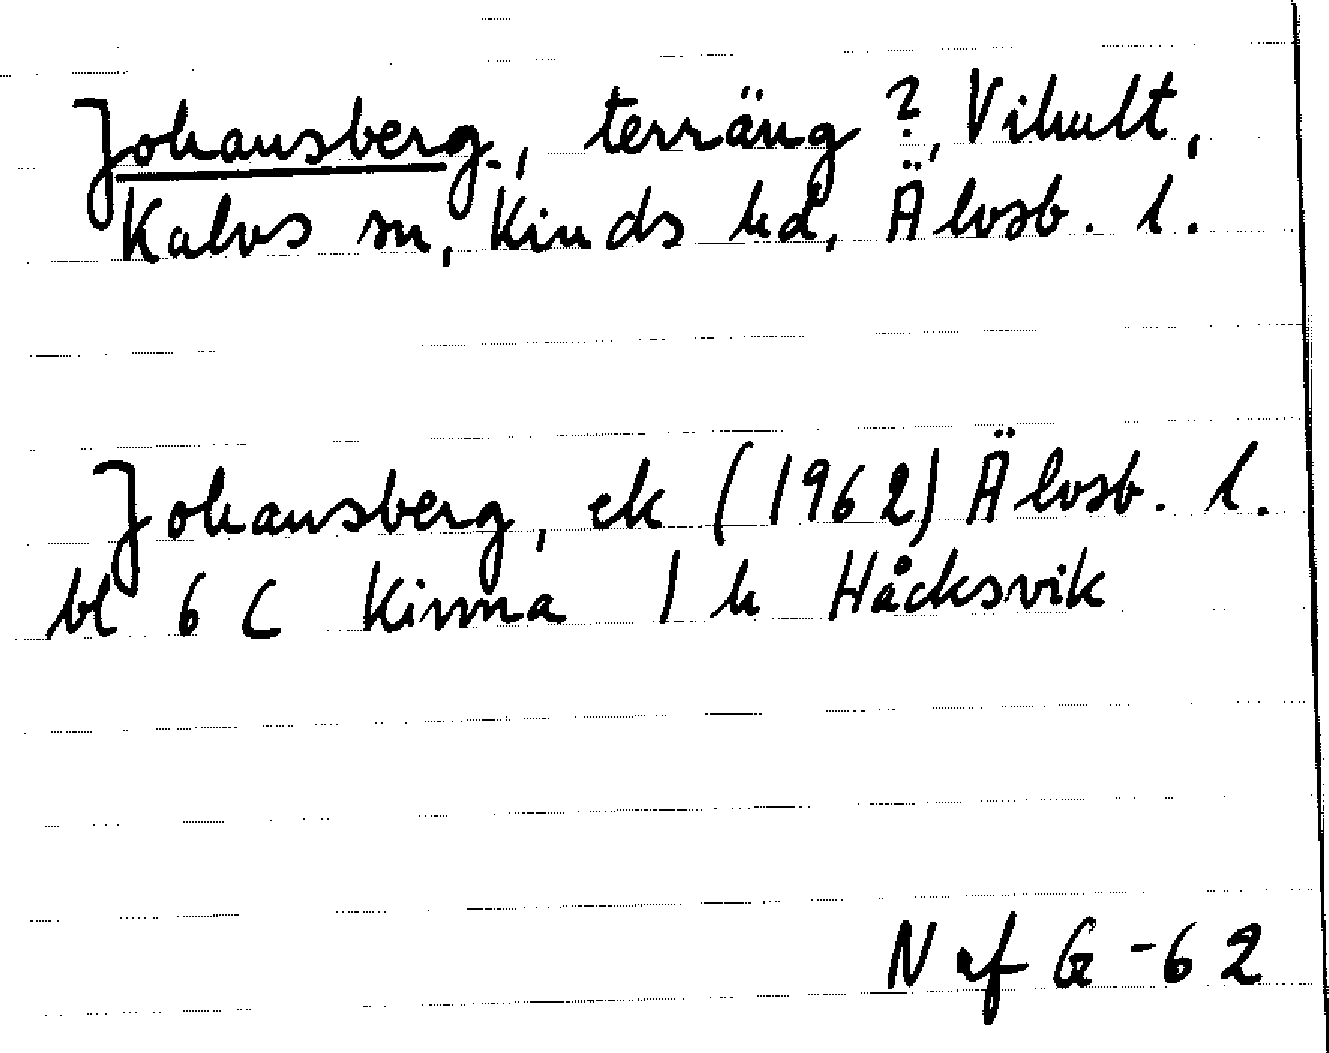 Johansberg, terräng ?, Vihult,
Kalvs sn, Kinds hd, Älvsb. l.
Johansberg, ek (1962) Älvsb. l.
bl 6 C Kinna 1 h Håcksvik
N af G -62